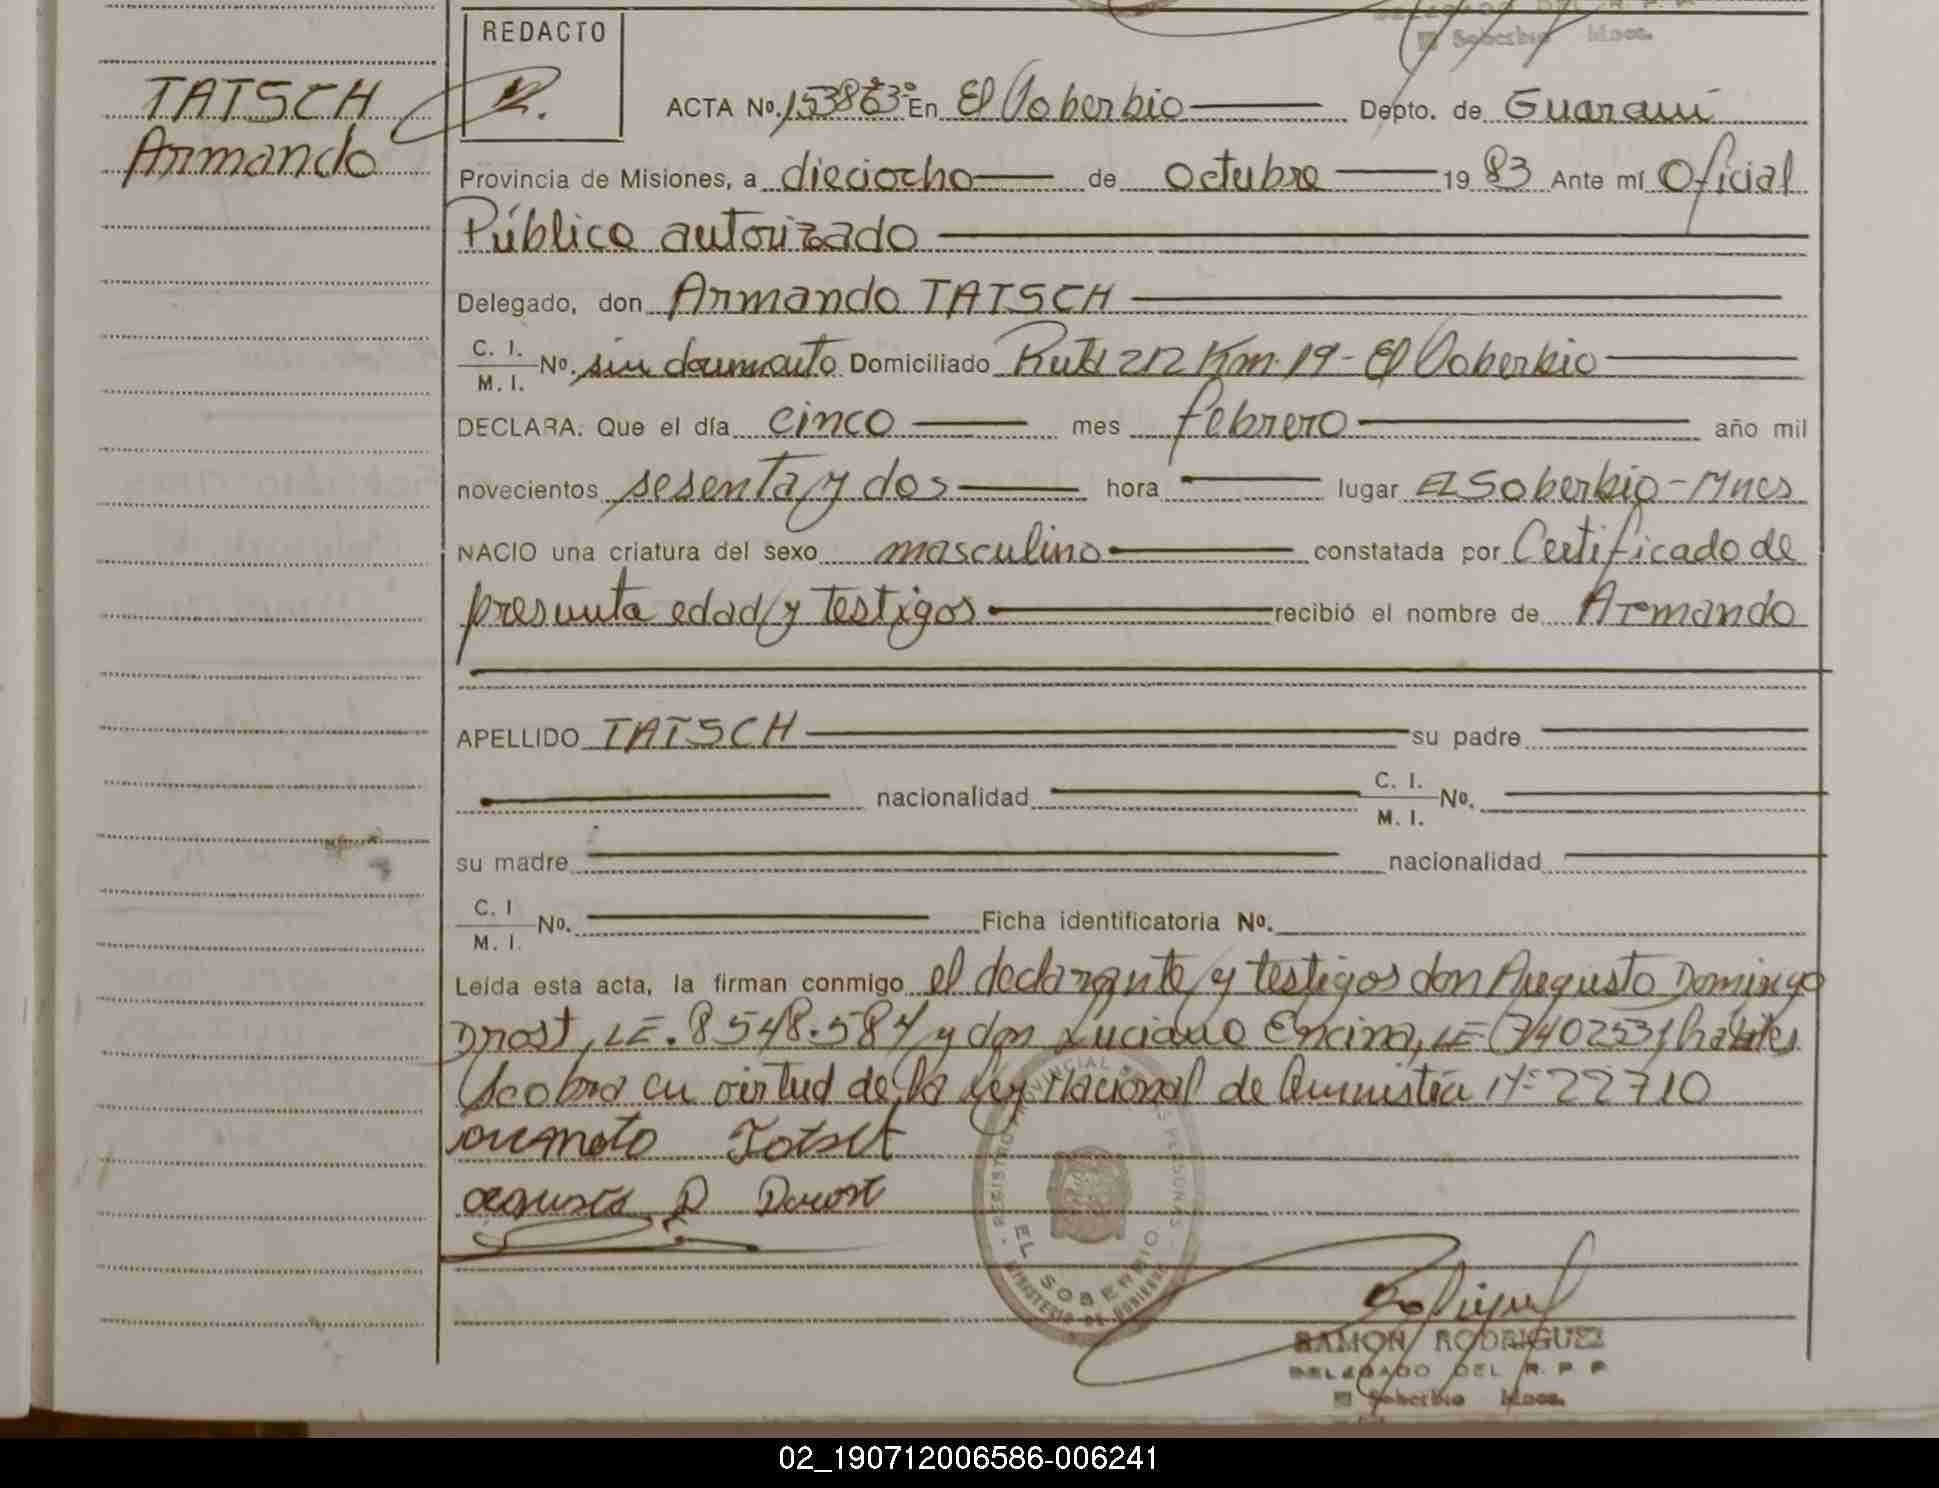 TATSCH
Armando
REDACTO
ACTA Nº. En El Soberbio Depto. de Guaraní
Provincia de Misiones, a dieciocho de octubre 19 83 Ante mí Oficial
Público autorizado
Delegado, don Armando TATSCH
C. I.
M. I. Nº. sin documento Domiciliado Ruta 212 Km. 19 - El Soberbio
DECLARA: Que el día cinco mes febrero año mil
novecientos sesenta y dos hora lugar El Soberbio - Mnes
NACIO una criatura del sexo masculino constatada por Certificado de
presunta edad y testigos recibió el nombre de Armando
APELLIDO TATSCH su padre
nacionalidad C. I.
M. I. Nº.
su madre nacionalidad
C. I
M. I. Nº. Ficha identificatoria Nº.
Leída esta acta, la firman conmigo el declarante y testigos don Augusto Domingo
Drost, LE. 8548.584 y don Luciano Encina, LE 7402531 habiles
Se obra en virtud de la Ley Nacional de Amnistía Nº 22710
REGISTRO PROVINCIAL DE LAS PERSONAS
EL SOBERBIO
MINISTERIO DE GOBIERNO
RAMON RODRIGUEZ
DELEGADO DEL R. P. P
El Soberbio Mnes.
02_190712006586-006241